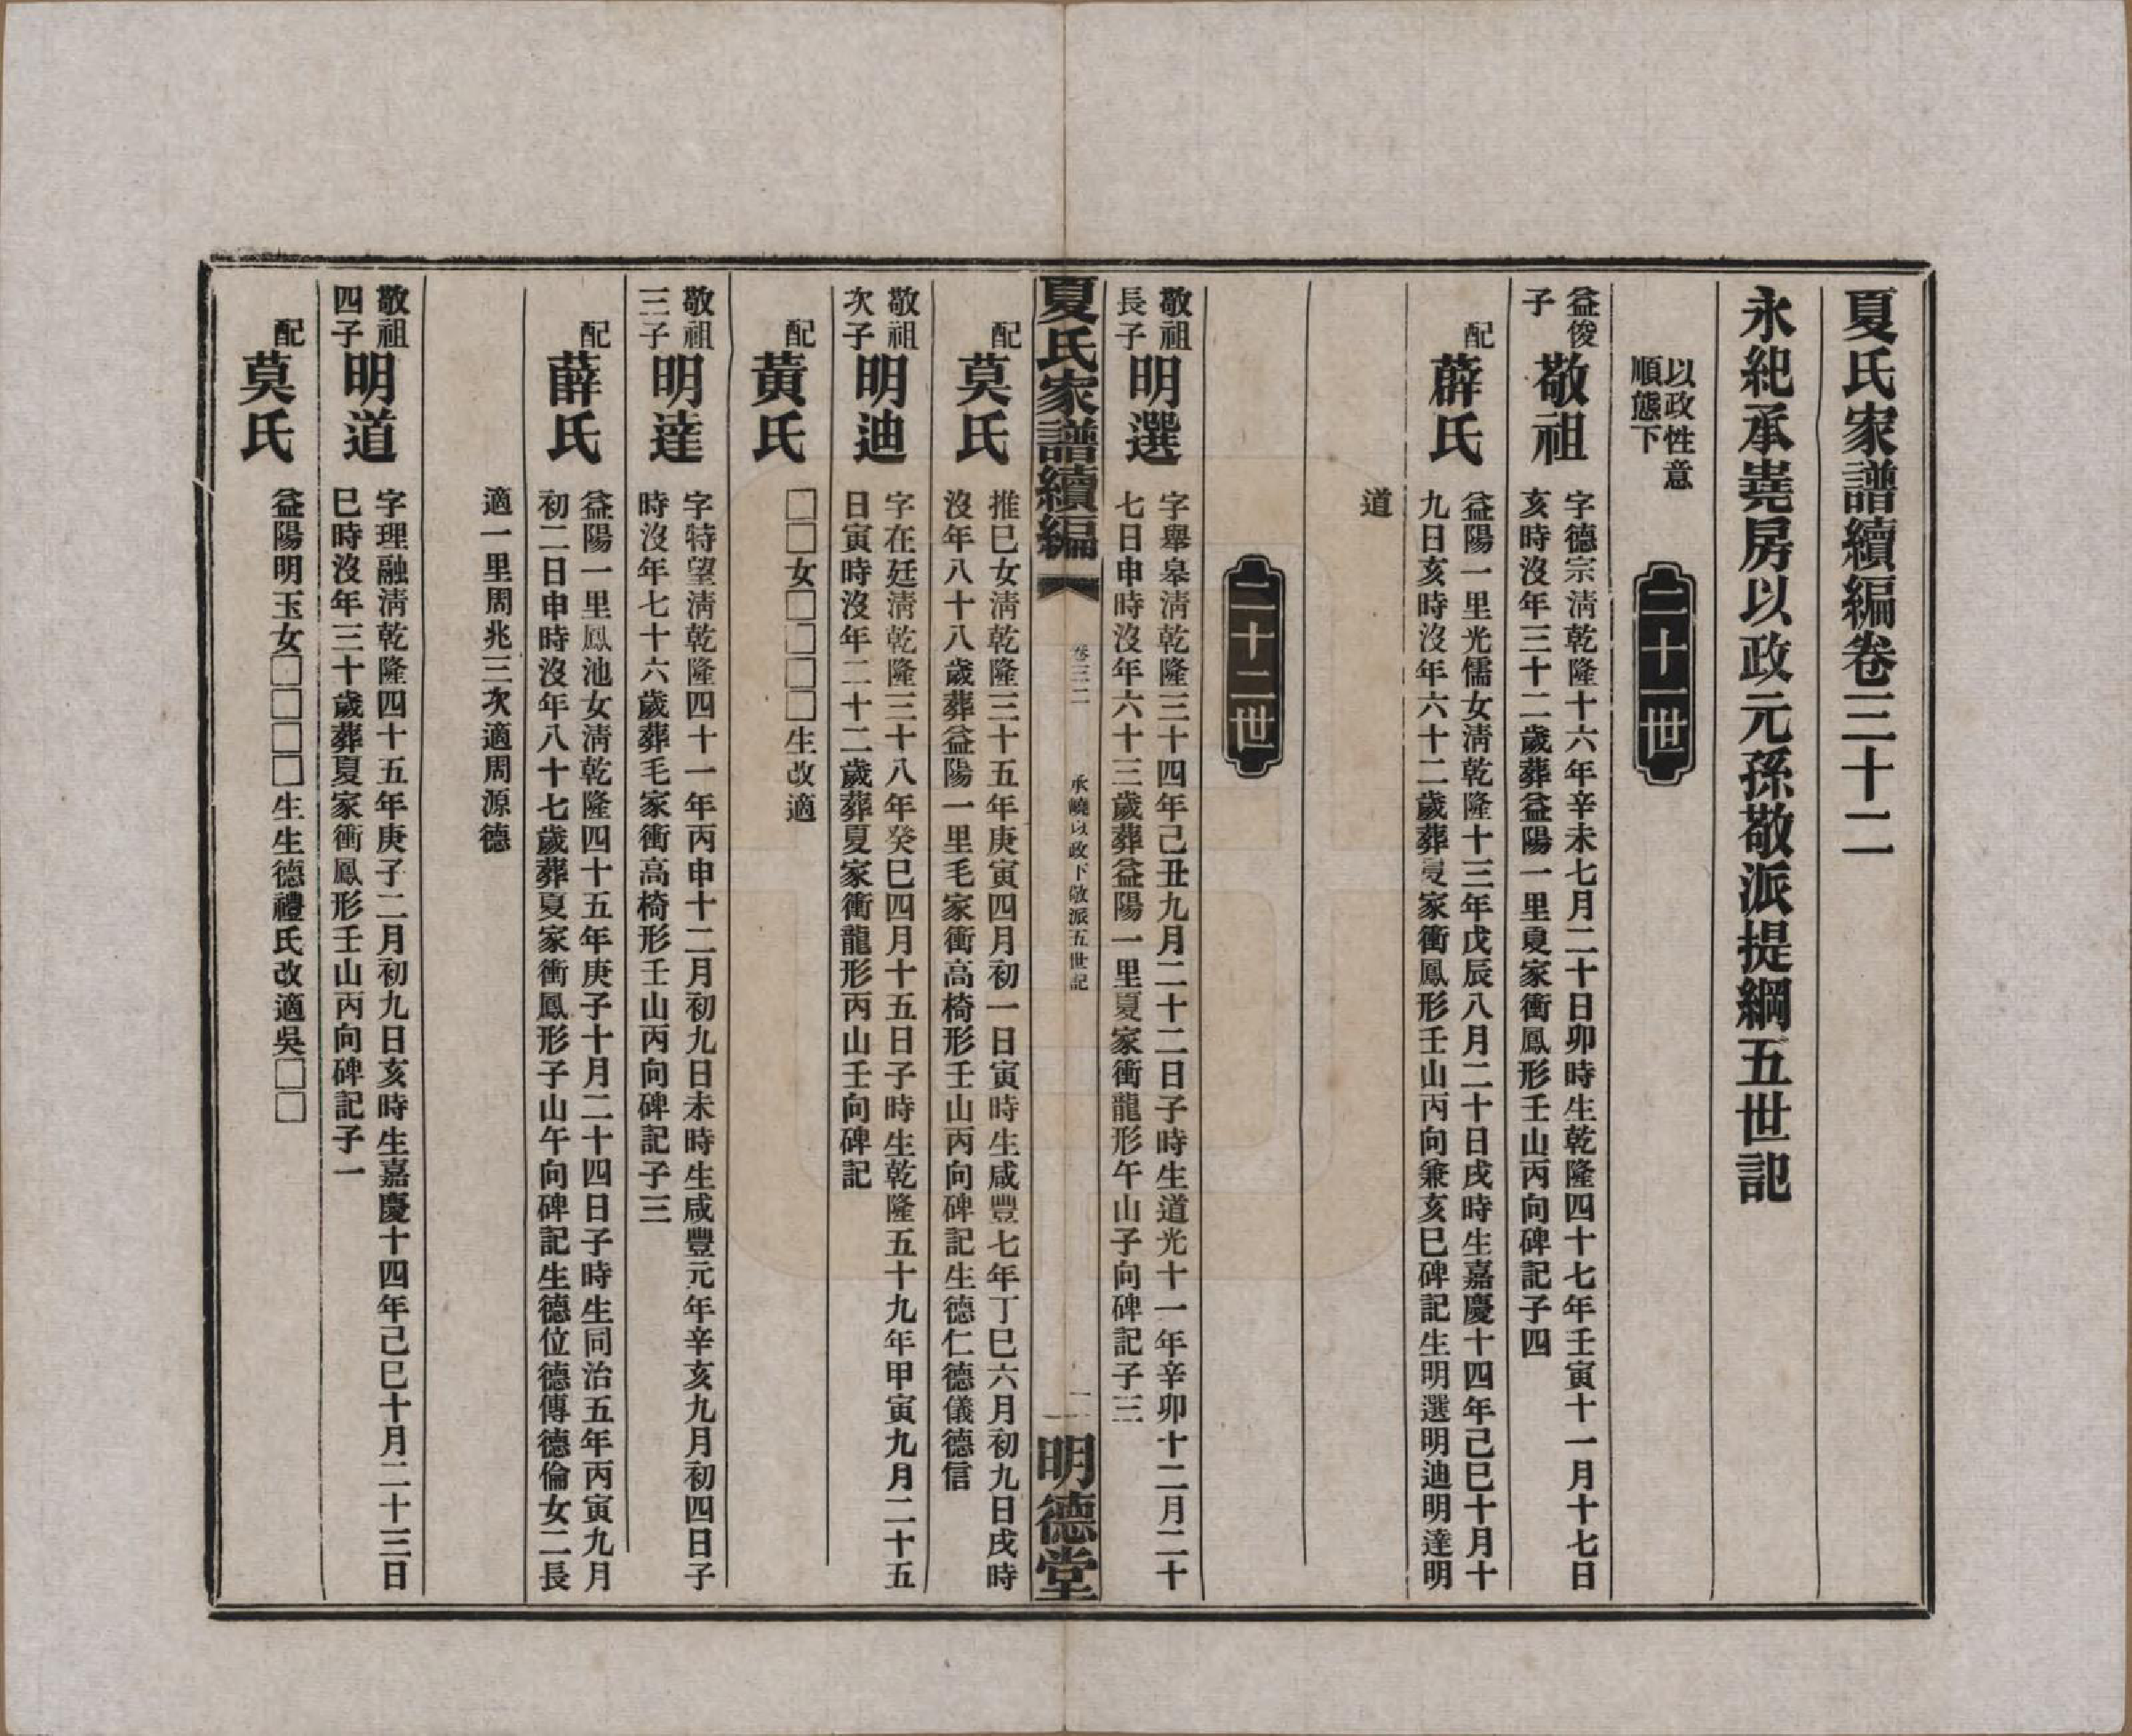 夏氏家譜續編卷三十二
永紀承嶤房以政元孫敬派提綱五世記
以政性意
順態下
二十一世
益俊
子
敬祖
字德宗淸乾隆十六年辛未七月二十日卯時生乾隆四十七年壬寅十一月十七日
亥時沒年三十二歲葬益陽一里夏家衝鳳形壬山丙向碑記子四
配
薛氏
益陽一里光儒女淸乾隆十三年戊辰八月二十日戌時生嘉慶十四年己巳十月十
九日亥時沒年六十二歲葬夏家衝鳳形壬山丙向兼亥巳碑記生明選明迪明達明
道
二十二世
敬祖
長子
明選
字舉皋淸乾隆三十四年己丑九月二十二日子時生道光十一年辛卯十二月二十
七日申時沒年六十三歲葬益陽一里夏家衝龍形午山子向碑記子三
夏氏家譜續編
卷三二
承嶢以政下敬派五世記
一
明德堂
配
莫氏
推巳女淸乾隆三十五年庚寅四月初一日寅時生咸豐七年丁巳六月初九日戌時
沒年八十八歲葬益陽一里毛家衝高椅形壬山丙向碑記生德仁德儀德信
敬祖
次子
明迪
字在廷淸乾隆三十八年癸巳四月十五日子時生乾隆五十九年甲寅九月二十五
日寅時沒年二十二歲葬夏家衝龍形丙山壬向碑記
配
黃氏
□□女□□□□生改適
敬祖
三子
明達
字特望淸乾隆四十一年丙申十二月初九日未時生咸豐元年辛亥九月初四日子
時沒年七十六歲葬毛家衝高椅形壬山丙向碑記子三
配
薛氏
益陽一里鳳池女淸乾隆四十五年庚子十月二十四日子時生同治五年丙寅九月
初二日申時沒年八十七歲葬夏家衝鳳形子山午向碑記生德位德傳德倫女二長
適一里周兆三次適周源德
敬祖
四子
明道
字理融淸乾隆四十五年庚子二月初九日亥時生嘉慶十四年己巳十月二十三日
巳時沒年三十歲葬夏家衝鳳形壬山丙向碑記子一
配
莫氏
益陽明玉女□□□□生生德禮氏改適吳□□